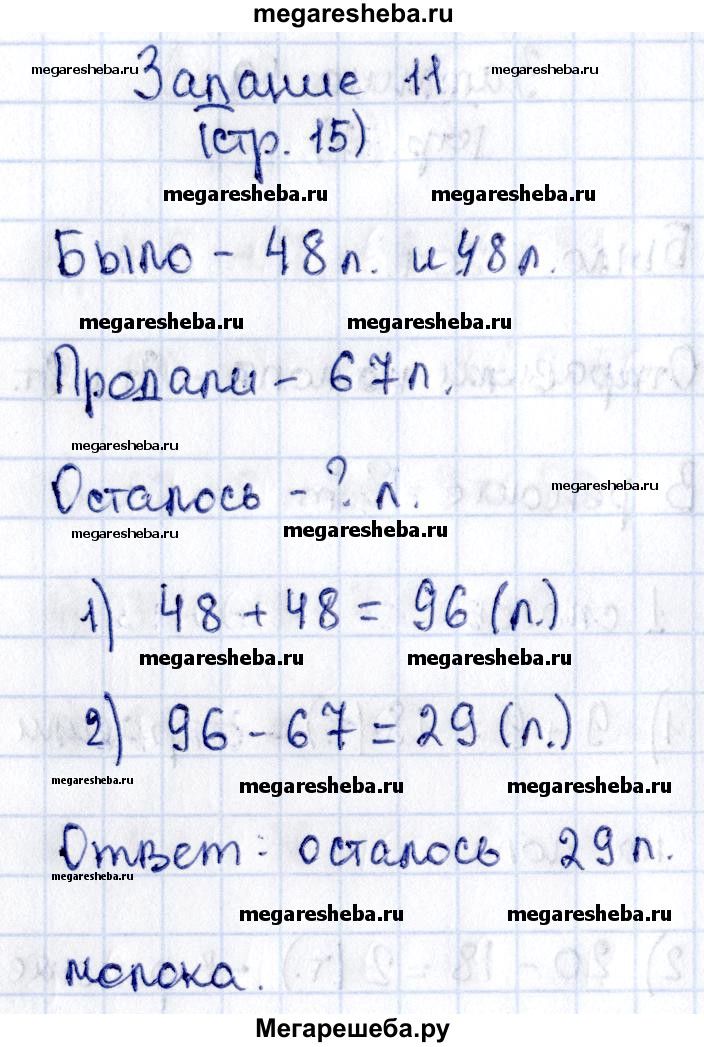 megaresheba.ru
Задание 11
megaresheba.ru megaresheba.ru
(стр. 15)
megaresheba.ru megaresheba.ru
Было - 48 л. и 48 л.
megaresheba.ru megaresheba.ru
Продали - 67 л.
megaresheba.ru
Осталось - ? л.
megaresheba.ru
megaresheba.ru megaresheba.ru
1) 48 + 48 = 96 (л.)
megaresheba.ru megaresheba.ru
2) 96 - 67 = 29 (л.)
megaresheba.ru
megaresheba.ru megaresheba.ru
Ответ: осталось 29 л.
megaresheba.ru
megaresheba.ru megaresheba.ru
молока.
Мегарешеба.ру